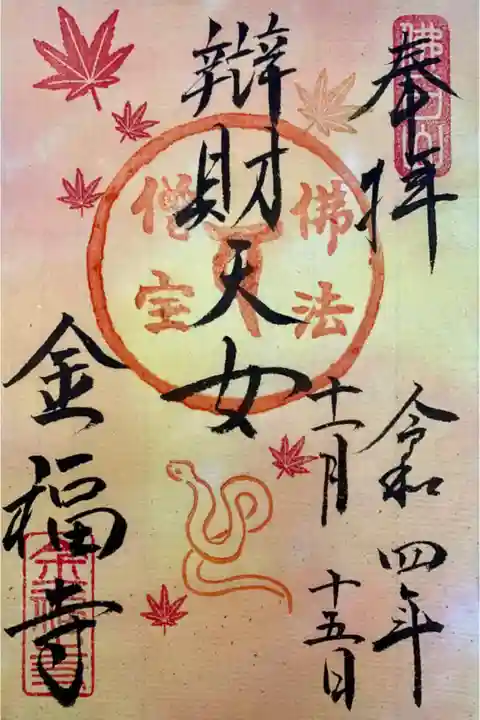 奉拝
令和四年
十一月
十五日
辯財天女
佛法
僧宝
金福寺
金福寺